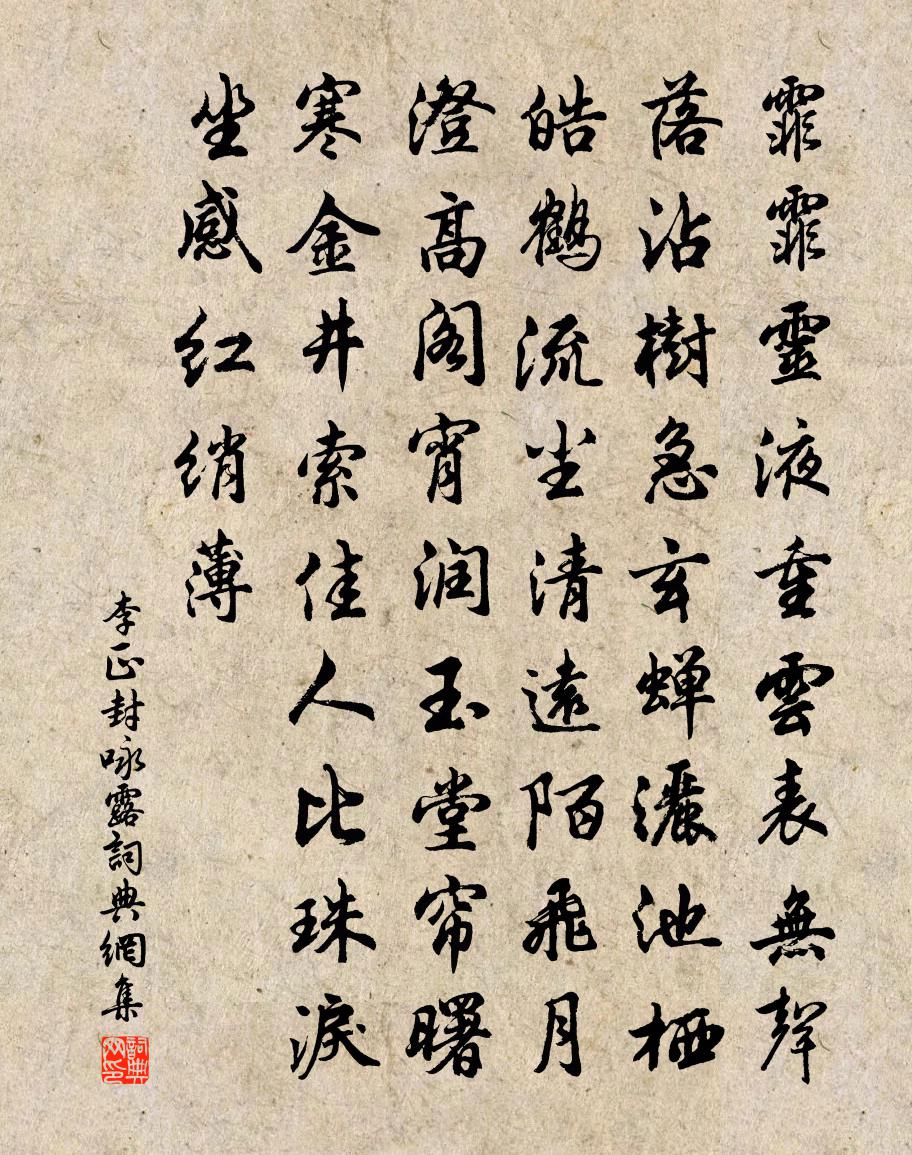 霏霏靈液重雲表無聲
落沾樹急玄蟬灑池栖
皓鶴流尘清遠陌飛月
澄高阁宵润玉堂帘曙
寒金井索佳人比珠淚
坐感红绡薄
李正封咏露詞典網集
詞典网印